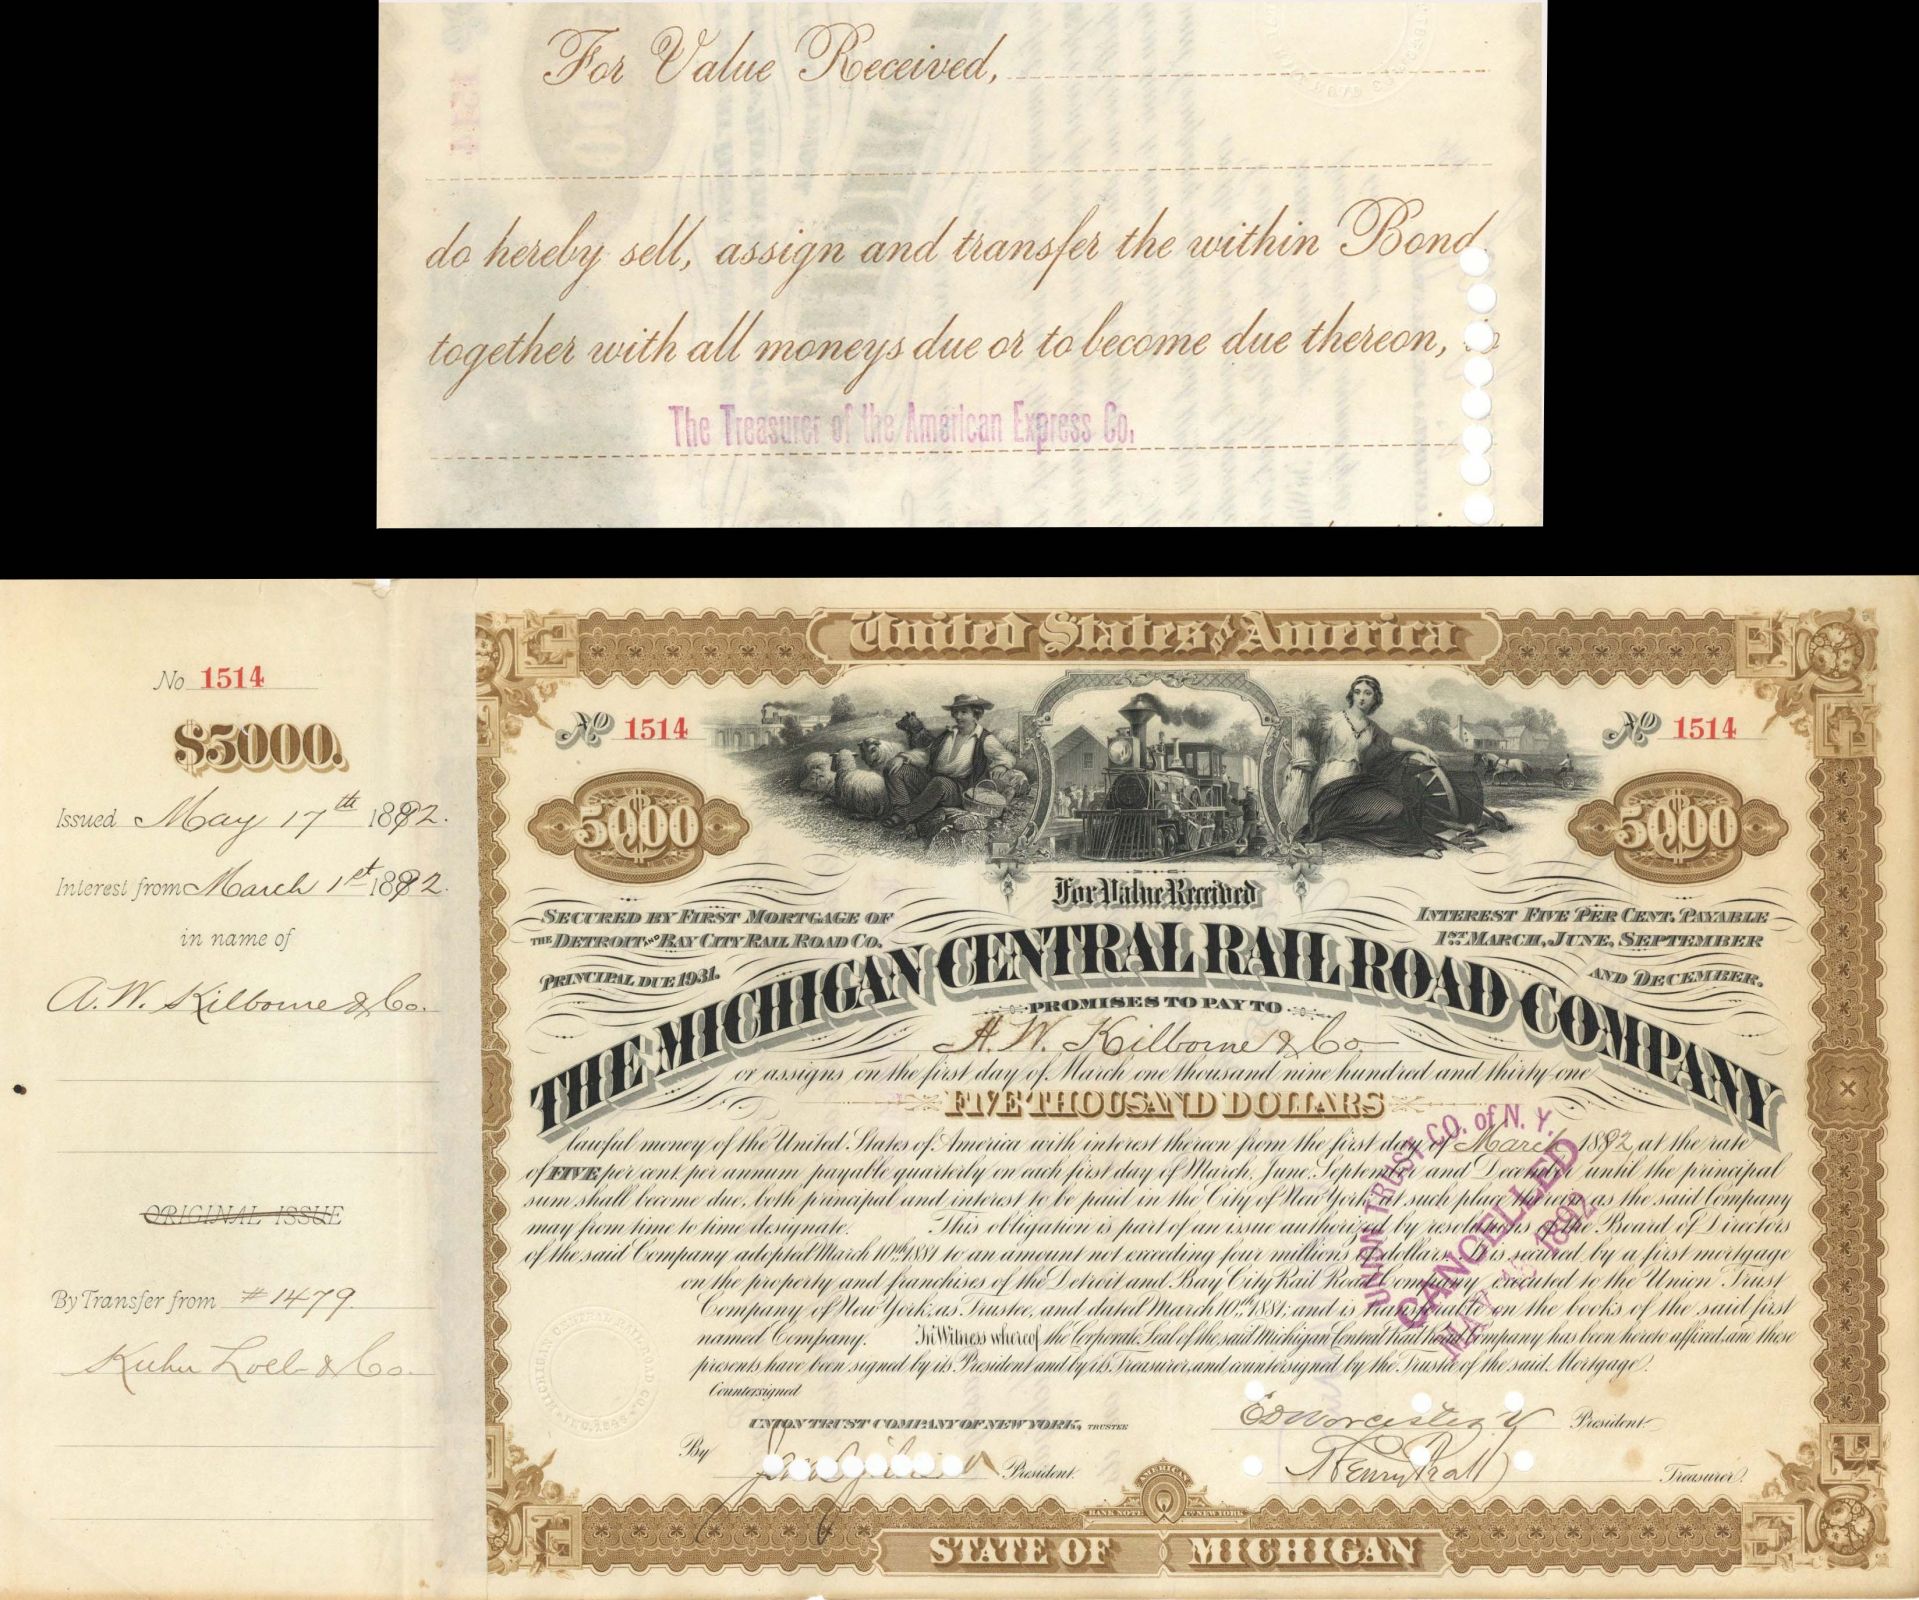 For Value Received,
do hereby sell, assign and transfer the within Bond
together with all moneys due or to become due thereon,
The Treasurer of the American Express Co.
No 1514
$5000.
Issued May 17th 1882.
Interest from March 1st 1882.
in name of
A. W. Kilborne & Co.
ORIGINAL ISSUE
By Transfer from #1479
Kuhn Loeb & Co.
United States of America
No 1514
No 1514
5000
5000
For Value Received
SECURED BY FIRST MORTGAGE OF
THE DETROIT AND BAY CITY RAIL ROAD CO.
PRINCIPAL DUE 1931.
INTEREST FIVE PER CENT. PAYABLE
1ST MARCH, JUNE, SEPTEMBER
AND DECEMBER.
THE MICHIGAN CENTRAL RAIL ROAD COMPANY
PROMISES TO PAY TO
A. W. Kilborne & Co
or assigns on the first day of March one thousand nine hundred and thirty-one
FIVE THOUSAND DOLLARS
lawful money of the United States of America with interest thereon from the first day of March 1882, at the rate
of FIVE per cent per annum, payable quarterly on each first day of March, June, September and December until the principal
sum shall become due, both principal and interest to be paid in the City of New York at such place therein as the said Company
may from time to time designate. This obligation is part of an issue authorized by resolutions of the Board of Directors
of the said Company adopted March 10th, 1881 to an amount not exceeding four millions of dollars. It is secured by a first mortgage
on the property and franchises of the Detroit and Bay City Rail Road Company, executed to the Union Trust
Company of New York, as Trustee, and dated March 10th, 1881; and is transferable on the books of the said first
named Company. In Witness whereof the Corporate Seal of the said Michigan Central Rail Road Company has been hereto affixed, and these
presents have been signed by its President and by its Treasurer, and countersigned by the Trustee of the said Mortgage.
UNION TRUST CO. of N. Y.
CANCELLED
MAY 15 1892
MICHIGAN CENTRAL RAILROAD CO.
Countersigned
UNION TRUST COMPANY OF NEW YORK, TRUSTEE
By President.
E D Worcester V President.
Henry Pratt Treasurer.
AMERICAN
BANK NOTE CO. NEW YORK
STATE OF MICHIGAN